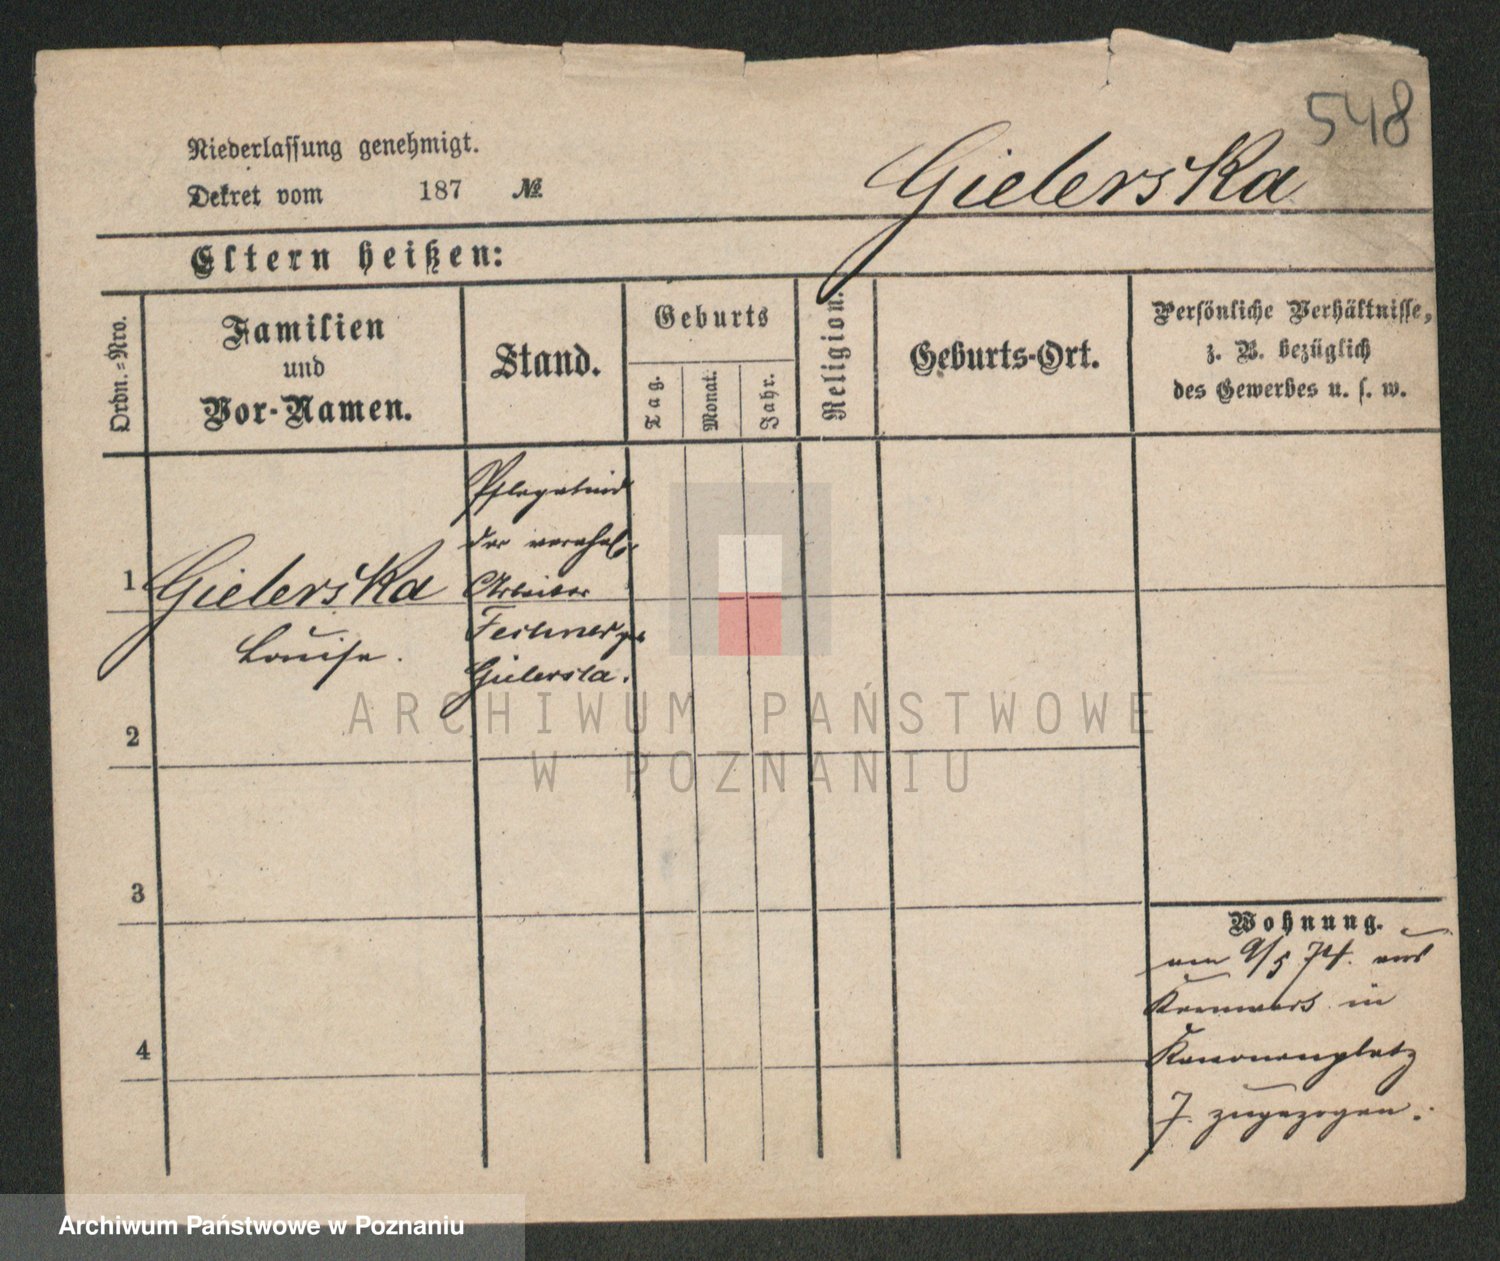 548
Niederlassung genehmigt.
Dekret vom 187 №
Gielerska
Eltern heißen:
Ordn.-Nro.
Familien
und
Vor-Namen.
Stand.
Geburts
Tag.
Monat.
Jahr.
Religion.
Geburts-Ort.
Persönliche Verhältnisse,
z. B. bezüglich
des Gewerbes u. s. w.
1
Gielerska
Louise.
Pflegekind
der verehel.
Arbeiter
Fechner ge
Gielerska.
2
3
4
Wohnung.
am 9/5 74. aus
in
Kanonenplatz
7. zugezogen.
ARCHIWUM PAŃSTWOWE
W POZNANIU
Archiwum Państwowe w Poznaniu